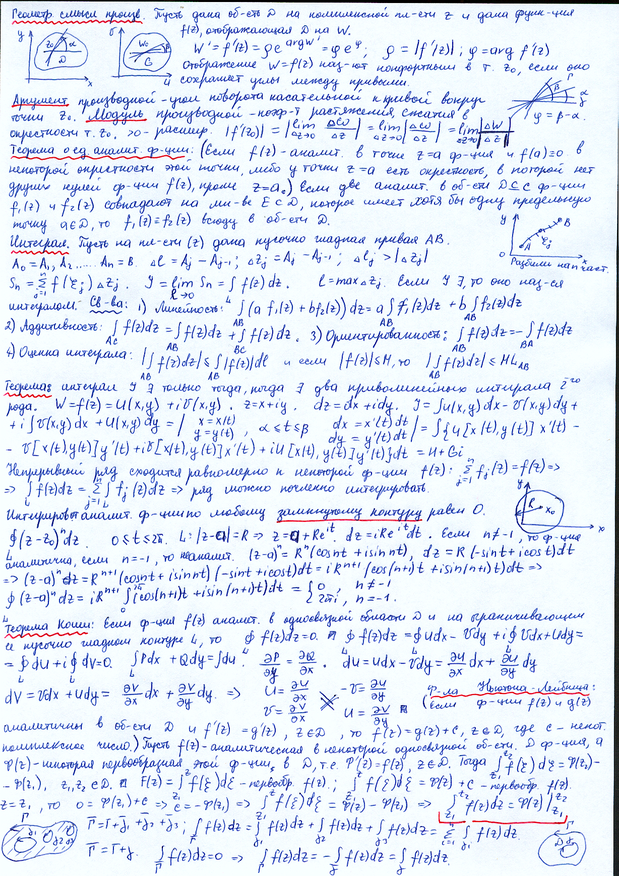 Геометр смысл произв. Пусть дана об-сть D на комплексной пл-сти z и дана функ-ция
f(z), отображающая D на W.
W' = f'(z) = ρe^{argW'} = ρe^{φ}; ρ = |f'(z)|; φ = arg f'(z)
Отображение W=f(z) наз-ют конформным в т. z₀, если оно
сохраняет углы между кривыми.
Аргумент производной - угол поворота касательной к кривой вокруг
точки z₀. Модуль производной - коэф-т растяжения, сжатия в
окрестности т. z₀. >0 - расшир. |f'(z₀)| = |lim_{Δz→0} Δω/Δz| = lim_{Δz→0} |Δω/Δz| = lim_{Δz→0} |ΔW|/|Δz|
φ = β-α.
Теорема о ед аналит. ф-ции: (Если f(z) - аналит. в точке z=a ф-ция и f(a)=0 в
некоторой окрестности этой точки, либо у точки z=a есть окрестность, в которой нет
других нулей ф-ции f(z), кроме z=a.) если две аналит. в об-сти D⊆C ф-ции
f₁(z) и f₂(z) совпадают на мн-ве E⊂D, которое имеет хотя бы одну предельную
точку a∈D, то f₁(z)=f₂(z) всюду в об-сти D.
Интеграл. Пусть на пл-сти (z) дана кусочно гладкая кривая AB.
A₀=A₁, A₂ ...... Aₙ=B. Δl = Aj - Aj-1; Δzj = Aj - Aj-1; Δlj > |Δzj|
Разбили на n част.
Sₙ = Σ_{j=1}^{n} f(ξj) Δzj. J = lim_{l→0} Sₙ = ∫f(z)dz. l = max Δzj. Если J ∃, то оно наз-ся
интегралом. Св-ва: 1) Линейность: ∫(a f₁(z) + bf₂(z))dz = a∫f₁(z)dz + b∫f₂(z)dz
2) Аддитивность: ∫_{AC} f(z)dz = ∫_{AB} f(z)dz + ∫_{BC} f(z)dz. 3) Ориентированность: ∫_{AB} f(z)dz = -∫_{BA} f(z)dz
4) Оценка интеграла: |∫_{AB} f(z)dz| ≤ ∫_{AB} |f(z)|dl и если |f(z)| ≤ M, то |∫_{AB} f(z)dz| ≤ ML_{AB}
Теорема: интеграл J ∃ только тогда, когда ∃ два криволинейных интеграла 2^{го}
рода. W=f(z) = U(x,y) + iV(x,y). z=x+iy. dz=dx+idy. J = ∫U(x,y)dx - V(x,y)dy +
+ i∫V(x,y)dx + U(x,y)dy = | x=x(t) y=y(t), α≤t≤β dx=x'(t)dt dy=y'(t)dt | = ∫{U[x(t),y(t)]x'(t) -
- V[x(t),y(t)]y'(t) + iV[x(t),y(t)]x'(t) + iU[x(t),y(t)]y'(t)}dt = И + Ci
Непрерывный ряд сходится равномерно к некоторой ф-ции f(z): Σ_{j=1}^{n} fj(z) = f(z) =>
=> ∫f(z)dz = Σ_{j=1}^{n} ∫fj(z)dz => ряд можно почленно интегрировать.
Интегриров-т аналит. ф-ции по любому замкнутому контуру равен 0.
∮(z-z₀)ⁿdz. 0≤t≤2π. L: |z-a|=R => z=a+Re^{it}. dz=iRe^{it}dt. Если n≠-1, то ф-ция
аналитична, если n=-1, то неаналит. (z-a)ⁿ = Rⁿ(cosnt + isinnt), dz = R(-sint+icost)dt
=> (z-a)ⁿdz = Rⁿ⁺¹(cosnt+isinnt)(-sint+icost)dt = iRⁿ⁺¹(cos(n+1)t + isin(n+1)t)dt =>
∮(z-a)ⁿdz = iRⁿ⁺¹∫₀^{2π}(cos(n+1)t + isin(n+1)t)dt = { 0, n≠-1 2πi, n=-1.
Теорема Коши: Если ф-ция f(z) аналит. в односвязной области D и на ограничивающем
ее кусочно гладком контуре L, то ∮f(z)dz=0. ∮f(z)dz = ∮Udx - Vdy + i∮Vdx+Udy =
= ∮du + i∮dV = 0. ∫Pdx + Qdy = ∫du. ∂P/∂y = ∂Q/∂x. du = Udx - Vdy = ∂U/∂x dx + ∂U/∂y dy
dV = Vdx + Udy = ∂V/∂x dx + ∂V/∂y dy. => U = ∂U/∂x -V = ∂U/∂y V = ∂V/∂x U = ∂V/∂y
Ф-ла Ньютона-Лейбница:
(если ф-ции f(z) и g(z)
аналитичны в об-сти D и f'(z) = g'(z), z∈D, то f(z) = g(z)+c, z∈D, где c - некот.
комплексное число.) Пусть f(z) - аналитическая в некоторой односвязной об-сти. D ф-ция, а
φ(z) - некоторая первообразная этой ф-ции, в D, т.е. φ'(z) = f(z), z∈D. Тогда ∫_{z₁}^{z₂} f(ξ)dξ = φ(z₂) -
- φ(z₁), z₁,z₂∈D. F(z) = ∫f(ξ)dξ - первообр. f(z); ∫f(ξ)dξ = φ(z)+c - первообр. f(z).
z=z₁, то 0 = φ(z₁)+c => c = -φ(z₁) => ∫f(ξ)dξ = φ(z) - φ(z₁) => ∫_{z₁}^{z₂} f(z)dz = φ(z)|_{z₁}^{z₂}
Γ̄ = Γ + γ̄₁ + γ̄₂ + γ̄₃; ∫_Γ f(z)dz = ∫_{γ₁} f(z)dz + ∫_{γ₂} f(z)dz + ∫_{γ₃} f(z)dz = Σ_{i=1}^{n} ∫_{γi} f(z)dz.
Γ̄ = Γ + γ. ∫_{Γ̄} f(z)dz = 0 => ∫_Γ f(z)dz = -∫_γ f(z)dz = ∫_γ f(z)dz.